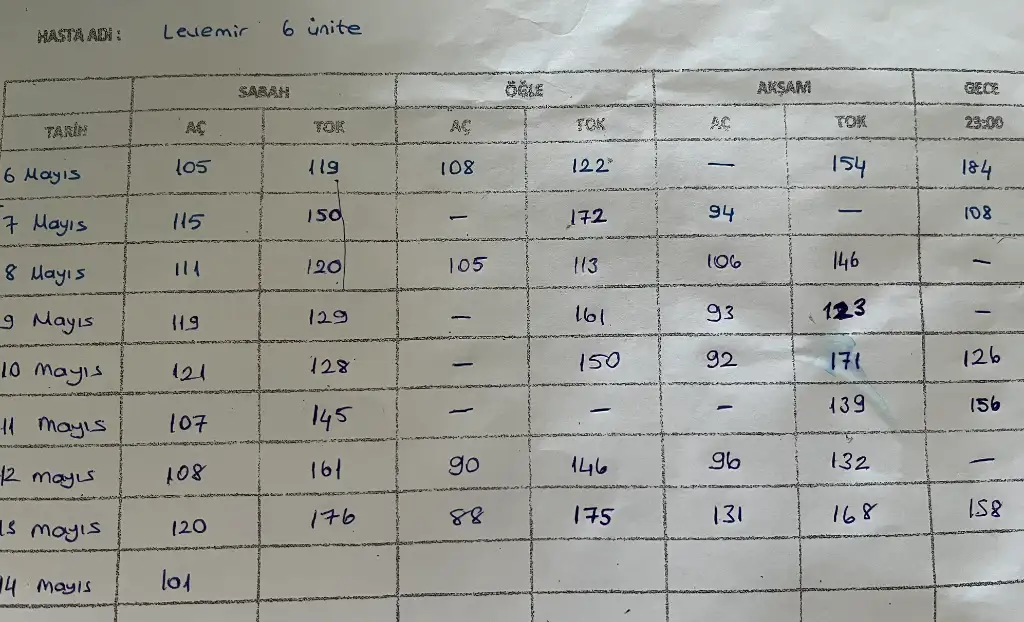 HASTA ADI : Levemir 6 ünite
SABAH ÖĞLE AKŞAM GECE
TARİH AÇ TOK AÇ TOK AÇ TOK 23:00
6 Mayıs 105 119 108 122 — 154 184
7 Mayıs 115 150 — 172 94 — 108
8 Mayıs 111 120 105 113 106 146 —
9 Mayıs 119 129 — 161 93 123 —
10 Mayıs 121 128 — 150 92 171 126
11 Mayıs 107 145 — — — 139 156
12 Mayıs 108 161 90 146 96 132 —
13 Mayıs 120 176 88 175 131 168 158
14 Mayıs 101